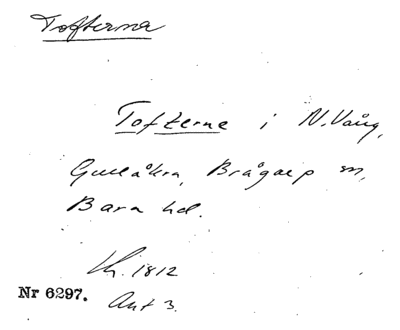 Tofterna
Tofterne i N. Vång,
Gullåkra, Brågarp sn,
Bara hd.
Lh. 1812
Nr 6297. Akt 3.